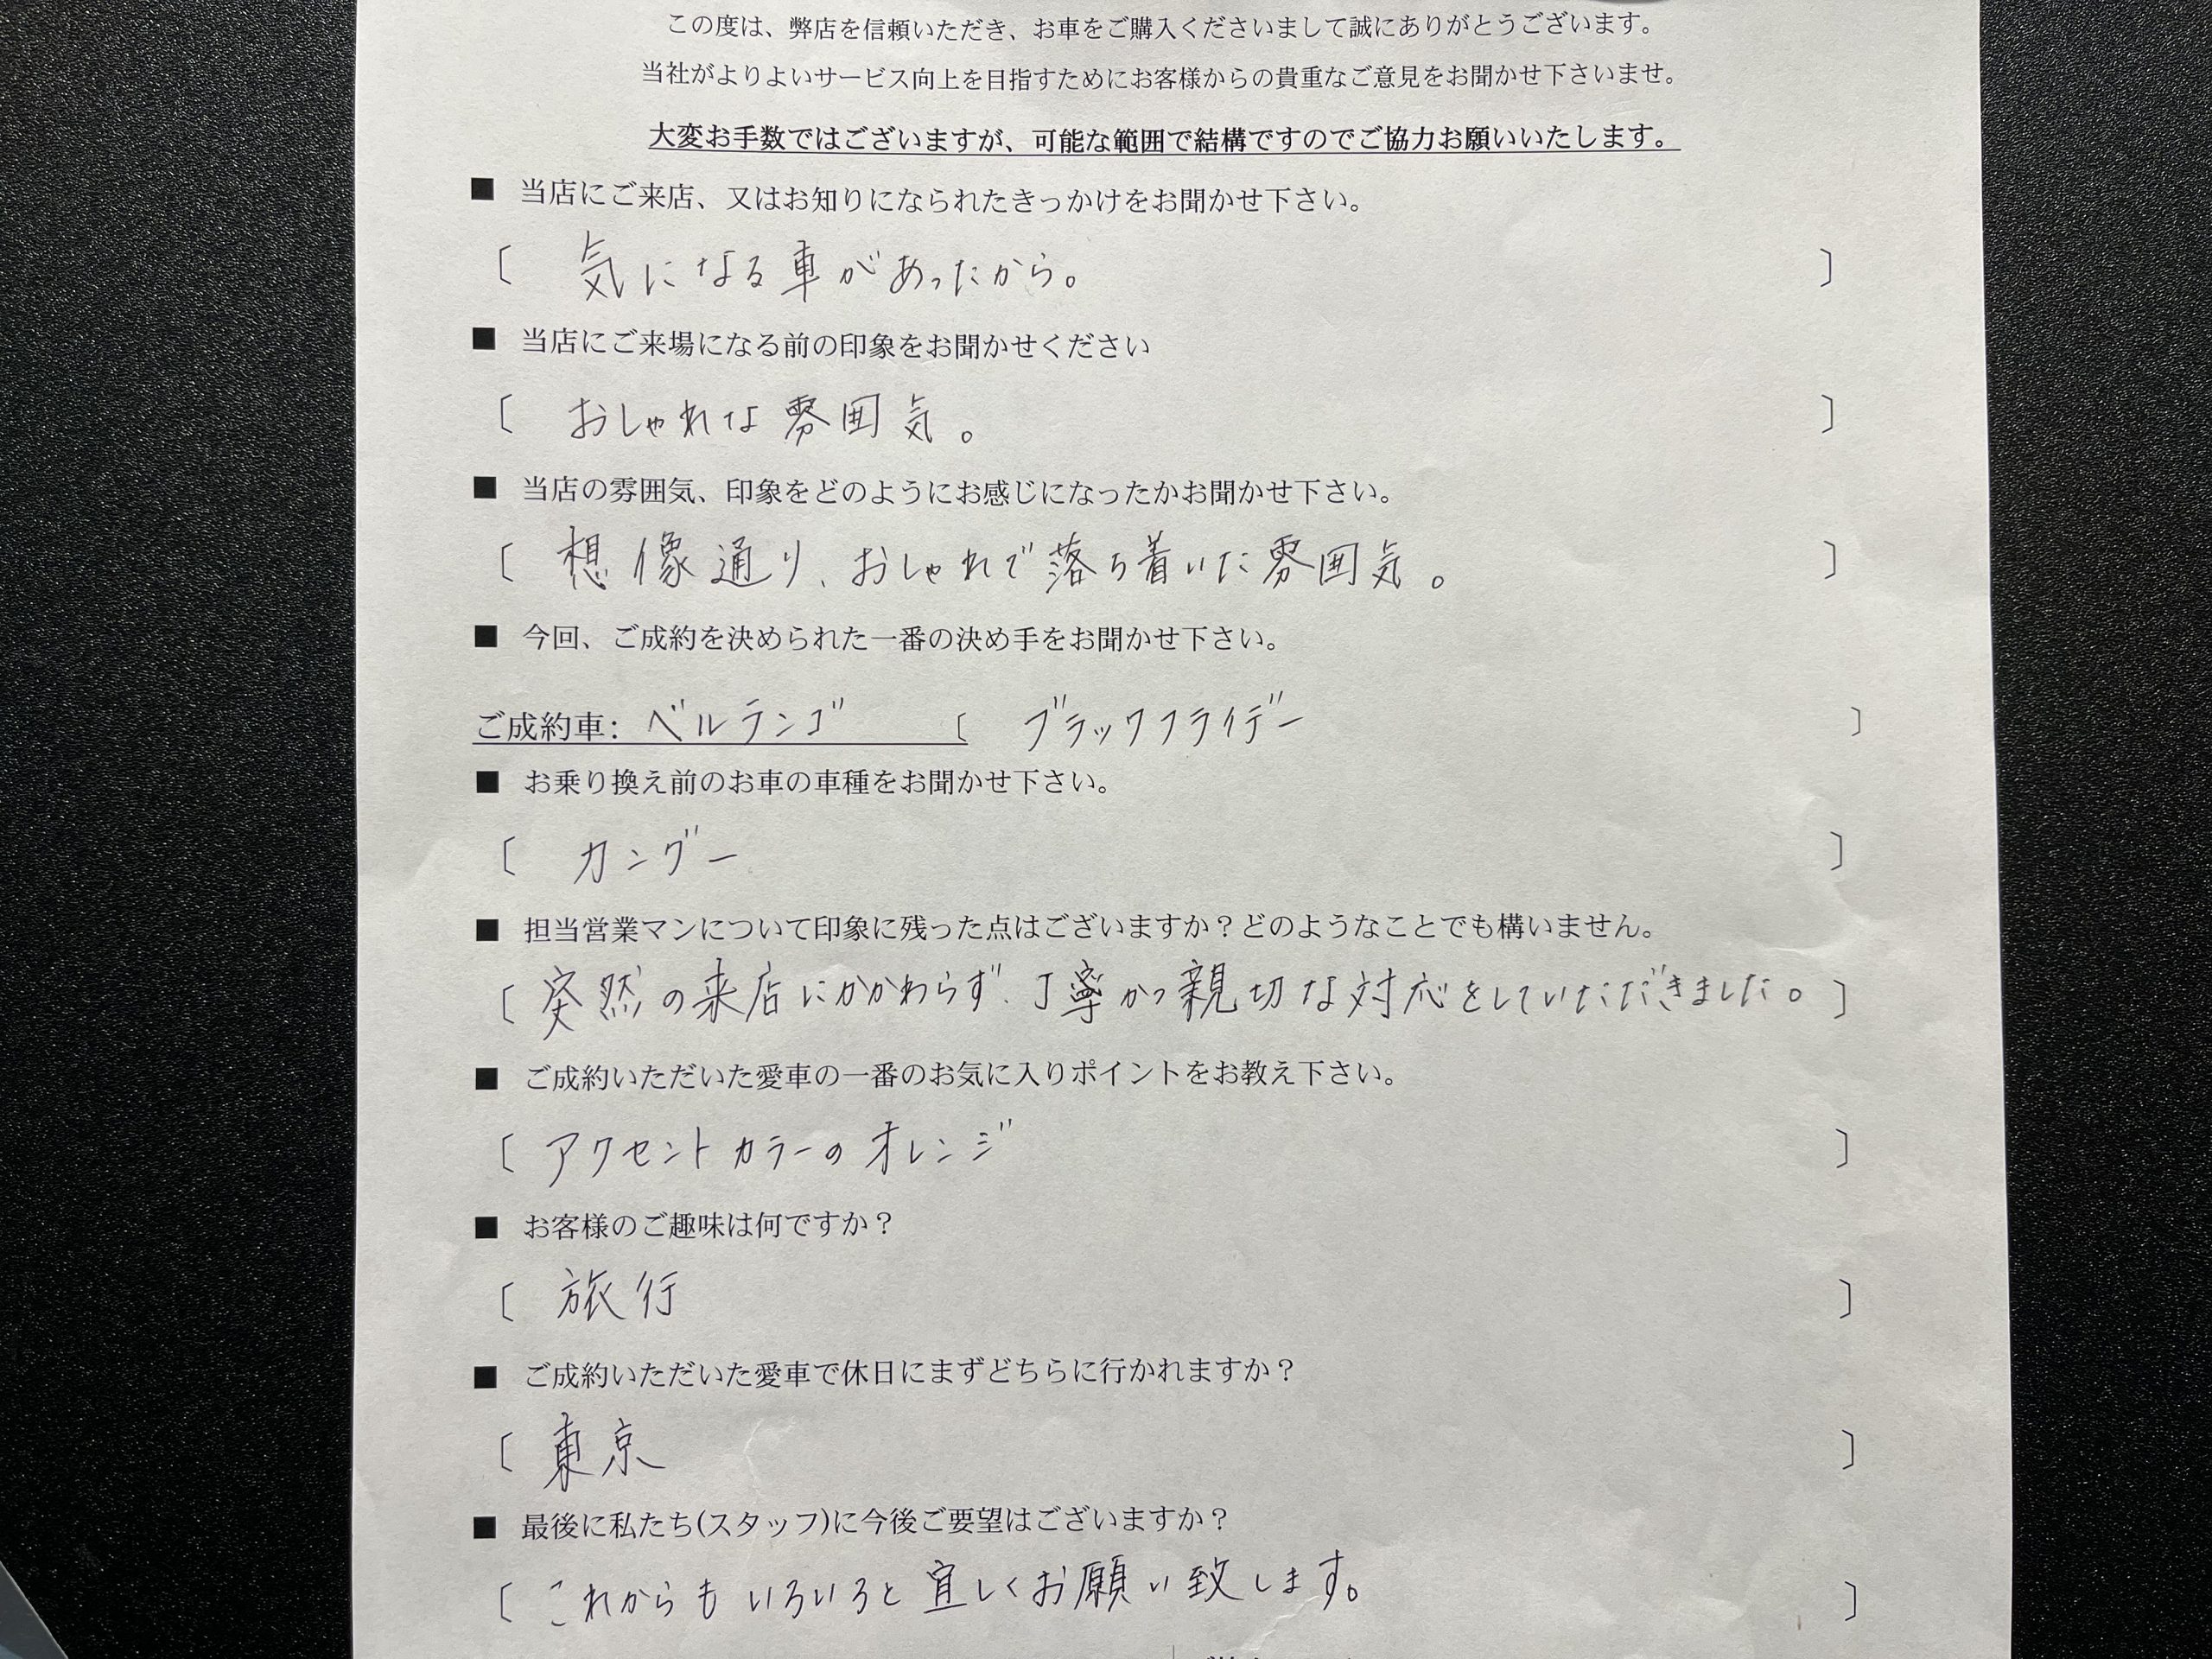 この度は、弊店を信頼いただき、お車をご購入くださいまして誠にありがとうございます。
当社がよりよいサービス向上を目指すためにお客様からの貴重なご意見をお聞かせ下さいませ。
大変お手数ではございますが、可能な範囲で結構ですのでご協力お願いいたします。
■ 当店にご来店、又はお知りになられたきっかけをお聞かせ下さい。
〔 気になる車があったから。 〕
■ 当店にご来場になる前の印象をお聞かせください
〔 おしゃれな雰囲気。 〕
■ 当店の雰囲気、印象をどのようにお感じになったかお聞かせ下さい。
〔 想像通り、おしゃれで落ち着いた雰囲気。 〕
■ 今回、ご成約を決められた一番の決め手をお聞かせ下さい。
ご成約車: ベルランゴ 〔 ブラックフライデー 〕
■ お乗り換え前のお車の車種をお聞かせ下さい。
〔 カングー 〕
■ 担当営業マンについて印象に残った点はございますか？どのようなことでも構いません。
〔 突然の来店にかかわらず、丁寧かつ親切な対応をしていただだきました。 〕
■ ご成約いただいた愛車の一番のお気に入りポイントをお教え下さい。
〔 アクセントカラーのオレンジ 〕
■ お客様のご趣味は何ですか？
〔 旅行 〕
■ ご成約いただいた愛車で休日にまずどちらに行かれますか？
〔 東京 〕
■ 最後に私たち(スタッフ)に今後ご要望はございますか？
〔 これからもいろいろと宜しくお願い致します。 〕